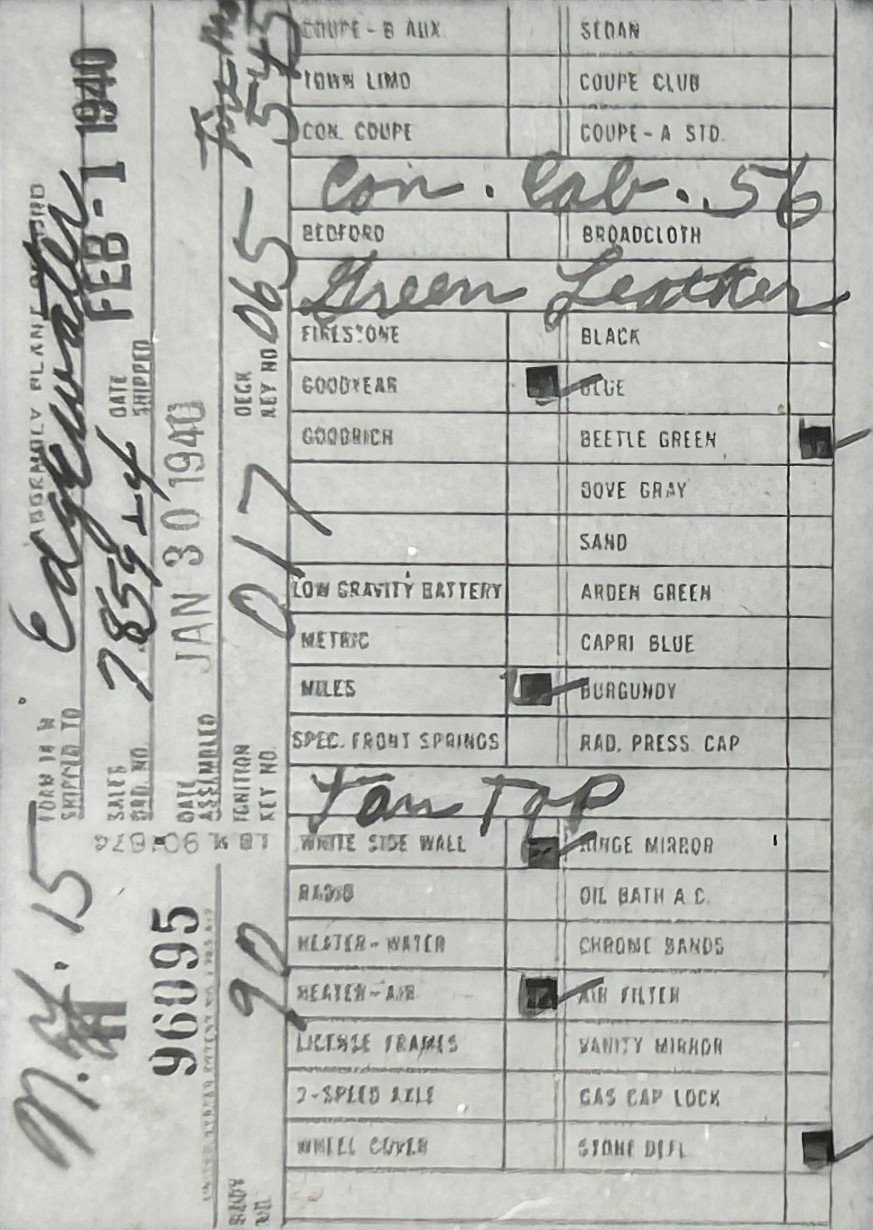 COUPE - B AUX. SEDAN
TOWN LIMO COUPE CLUB
CON. COUPE COUPE - A STD.
Con. Cab. 56
BEDFORD BROADCLOTH
Green Leather
FIRESTONE BLACK
GOODYEAR BLUE
GOODRICH BEETLE GREEN
DOVE GRAY
SAND
LOW GRAVITY BATTERY ARDEN GREEN
METRIC CAPRI BLUE
MILES BURGUNDY
SPEC. FRONT SPRINGS RAD. PRESS. CAP
Tan Top
WHITE SIDE WALL HINGE MIRROR
RADIO OIL BATH A.C.
HEATER-WATER CHROME BANDS
HEATER-AIR AIR FILTER
LICENSE FRAMES VANITY MIRROR
2-SPEED AXLE GAS CAP LOCK
WHEEL COVER STONE DEFL.
ASSEMBLY PLANT RECORD
SHIPPED TO Edgewater
SALES ORD. NO. DATE SHIPPED FEB -1 1940
DATE ASSEMBLED JAN 30 1940
IGNITION KEY NO. 017 DECK KEY NO. 065
545
N.Y. 15
H 96095
BODY NO. 90